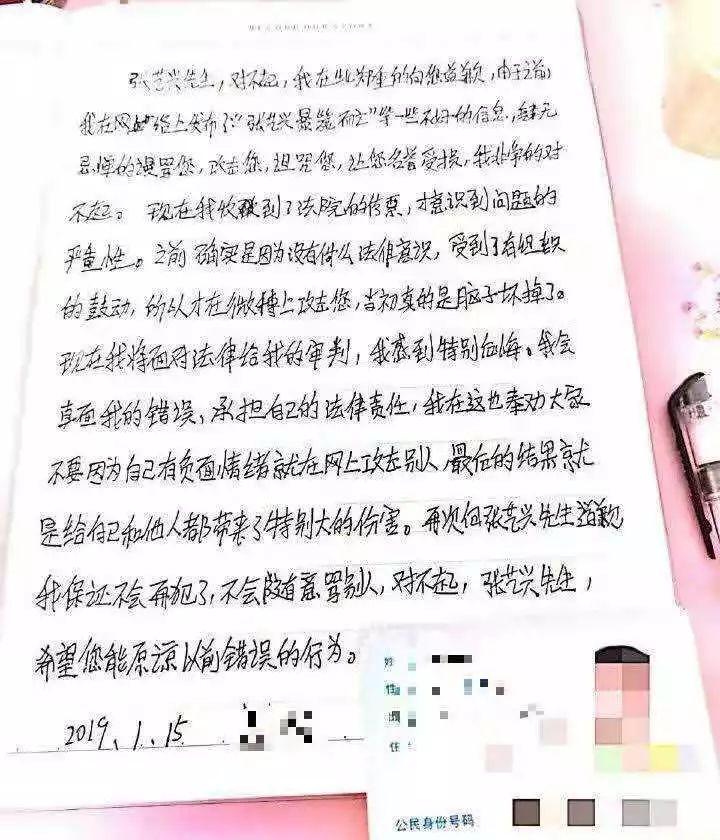 张艺兴先生，对不起，我在此郑重的向您道歉，由于之前
我在网络上发布了“张艺兴暴毙而亡”等一些不好的信息，肆无
忌惮的谩骂您，攻击您，诅咒您，让您名誉受损，我非常的对
不起。现在我收到了法院的传票，才意识到问题的
严重性。之前确实是因为没有什么法律意识，受到了有组织
的鼓动，所以才在微博上攻击您，当初真的是脑子坏掉了。
现在我将面对法律给我的审判，我感到特别后悔。我会
直面我的错误、承担自己的法律责任，我在这也奉劝大家
不要因为自己有负面情绪就在网上攻击别人，最后的结果就
是给自己和他人都带来了特别大的伤害。再次向张艺兴先生道歉
我保证不会再犯了，不会随意骂别人，对不起，张艺兴先生，
希望您能原谅以前错误的行为。
2019、1、15
姓
性
住
公民身份号码